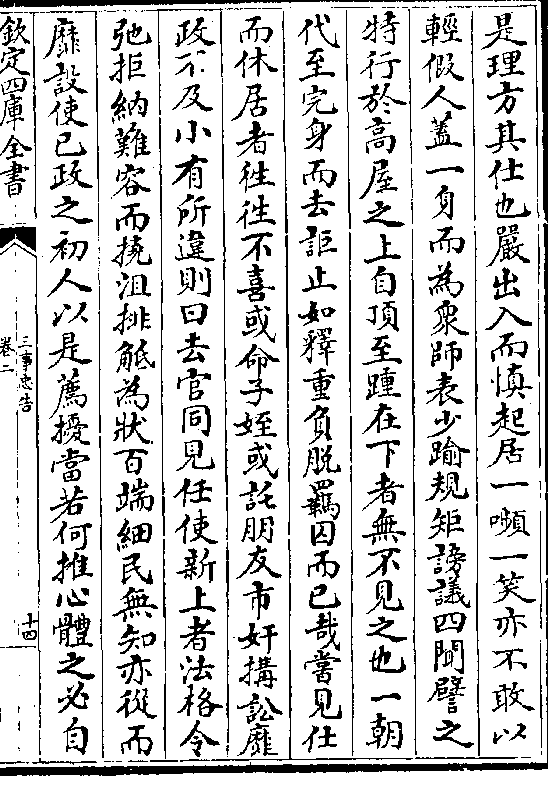 是理方其仕也嚴出入而慎起居一嚬一笑亦不敢以
輕假人蓋一身而為衆師表少踰規矩謗議四聞譬之
特行於高屋之上自頂至踵在下者無不見之也一朝
代至完身而去詎止如釋重負脱羈囚而已哉嘗見仕
而休居者徃徃不喜或命子姪或託朋友市奸搆訟靡
政不及小有所違則曰去官同見任使新上者法格令
弛拒納難容而撓沮排觝為狀百端細民無知亦從而
靡設使已政之初人以是薦擾當若何推心體之必自
欽定四庫全書
三事忠告
卷二
十四